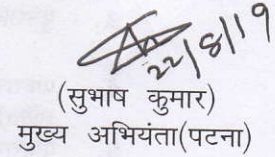 22/8/19
(सुभाष कुमार)
मुख्य अभियंता(पटना)